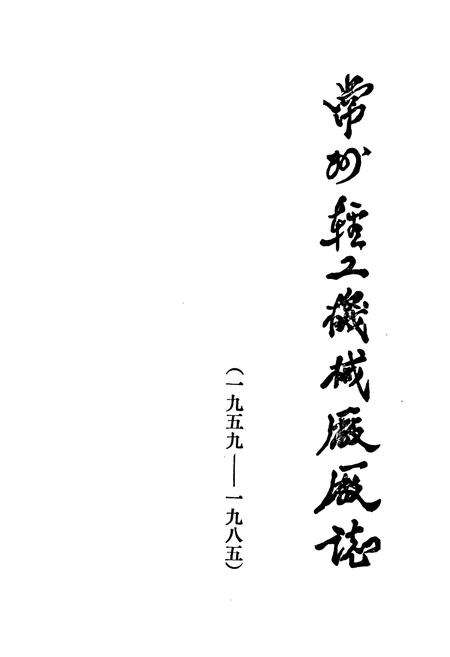 常州輕工機械厰厰誌
(一九五九——一九八五)